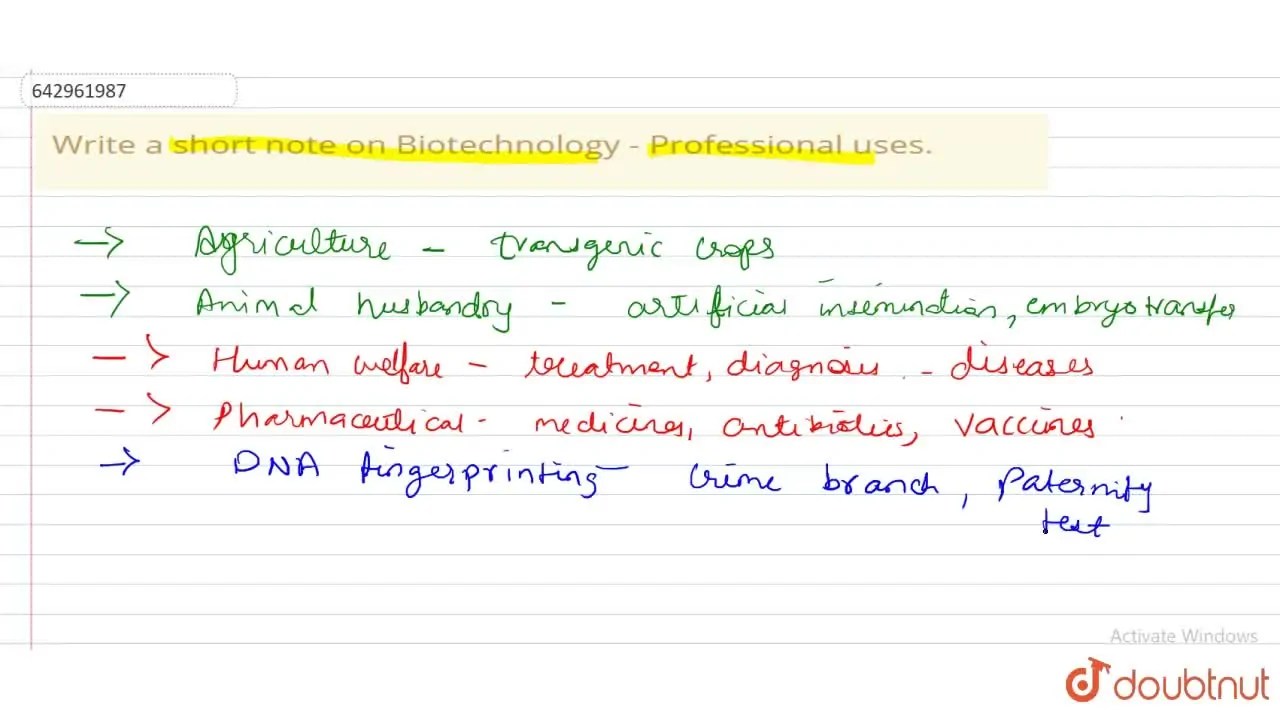 642961987
Write a short note on Biotechnology - Professional uses.
→ Agriculture - transgenic crops
→ Animal husbandry - artificial insemination, embryo transfer
→ Human welfare - treatment, diagnosis - diseases
→ Pharmaceutical - medicines, antibiotics, vaccines
→ DNA fingerprinting - crime branch, Paternity
test
Activate Windows
doubtnut